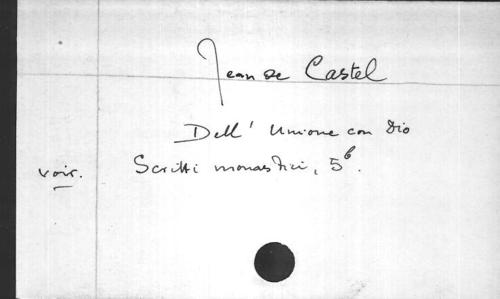 Jean de Castel
Dell' Unione con Dio
voir. Scritti monastici, 5⁶.